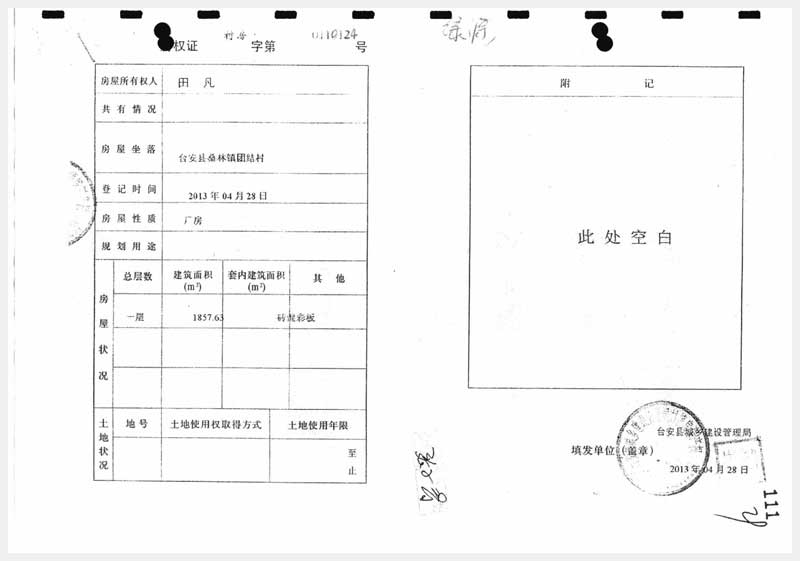 权证 字第 0110124 号
房屋所有权人 田 凡
共有情况
房屋坐落 台安县桑林镇团结村
登记时间 2013年04月28日
房屋性质 厂房
规划用途
房屋状况
总层数 建筑面积(m²) 套内建筑面积(m²) 其他
一层 1857.63 砖混彩板
土地状况
地号 土地使用权取得方式 土地使用年限
至
止
附 记
此处空白
台安县城乡建设管理局
填发单位（盖章）
2013年04月28日
111